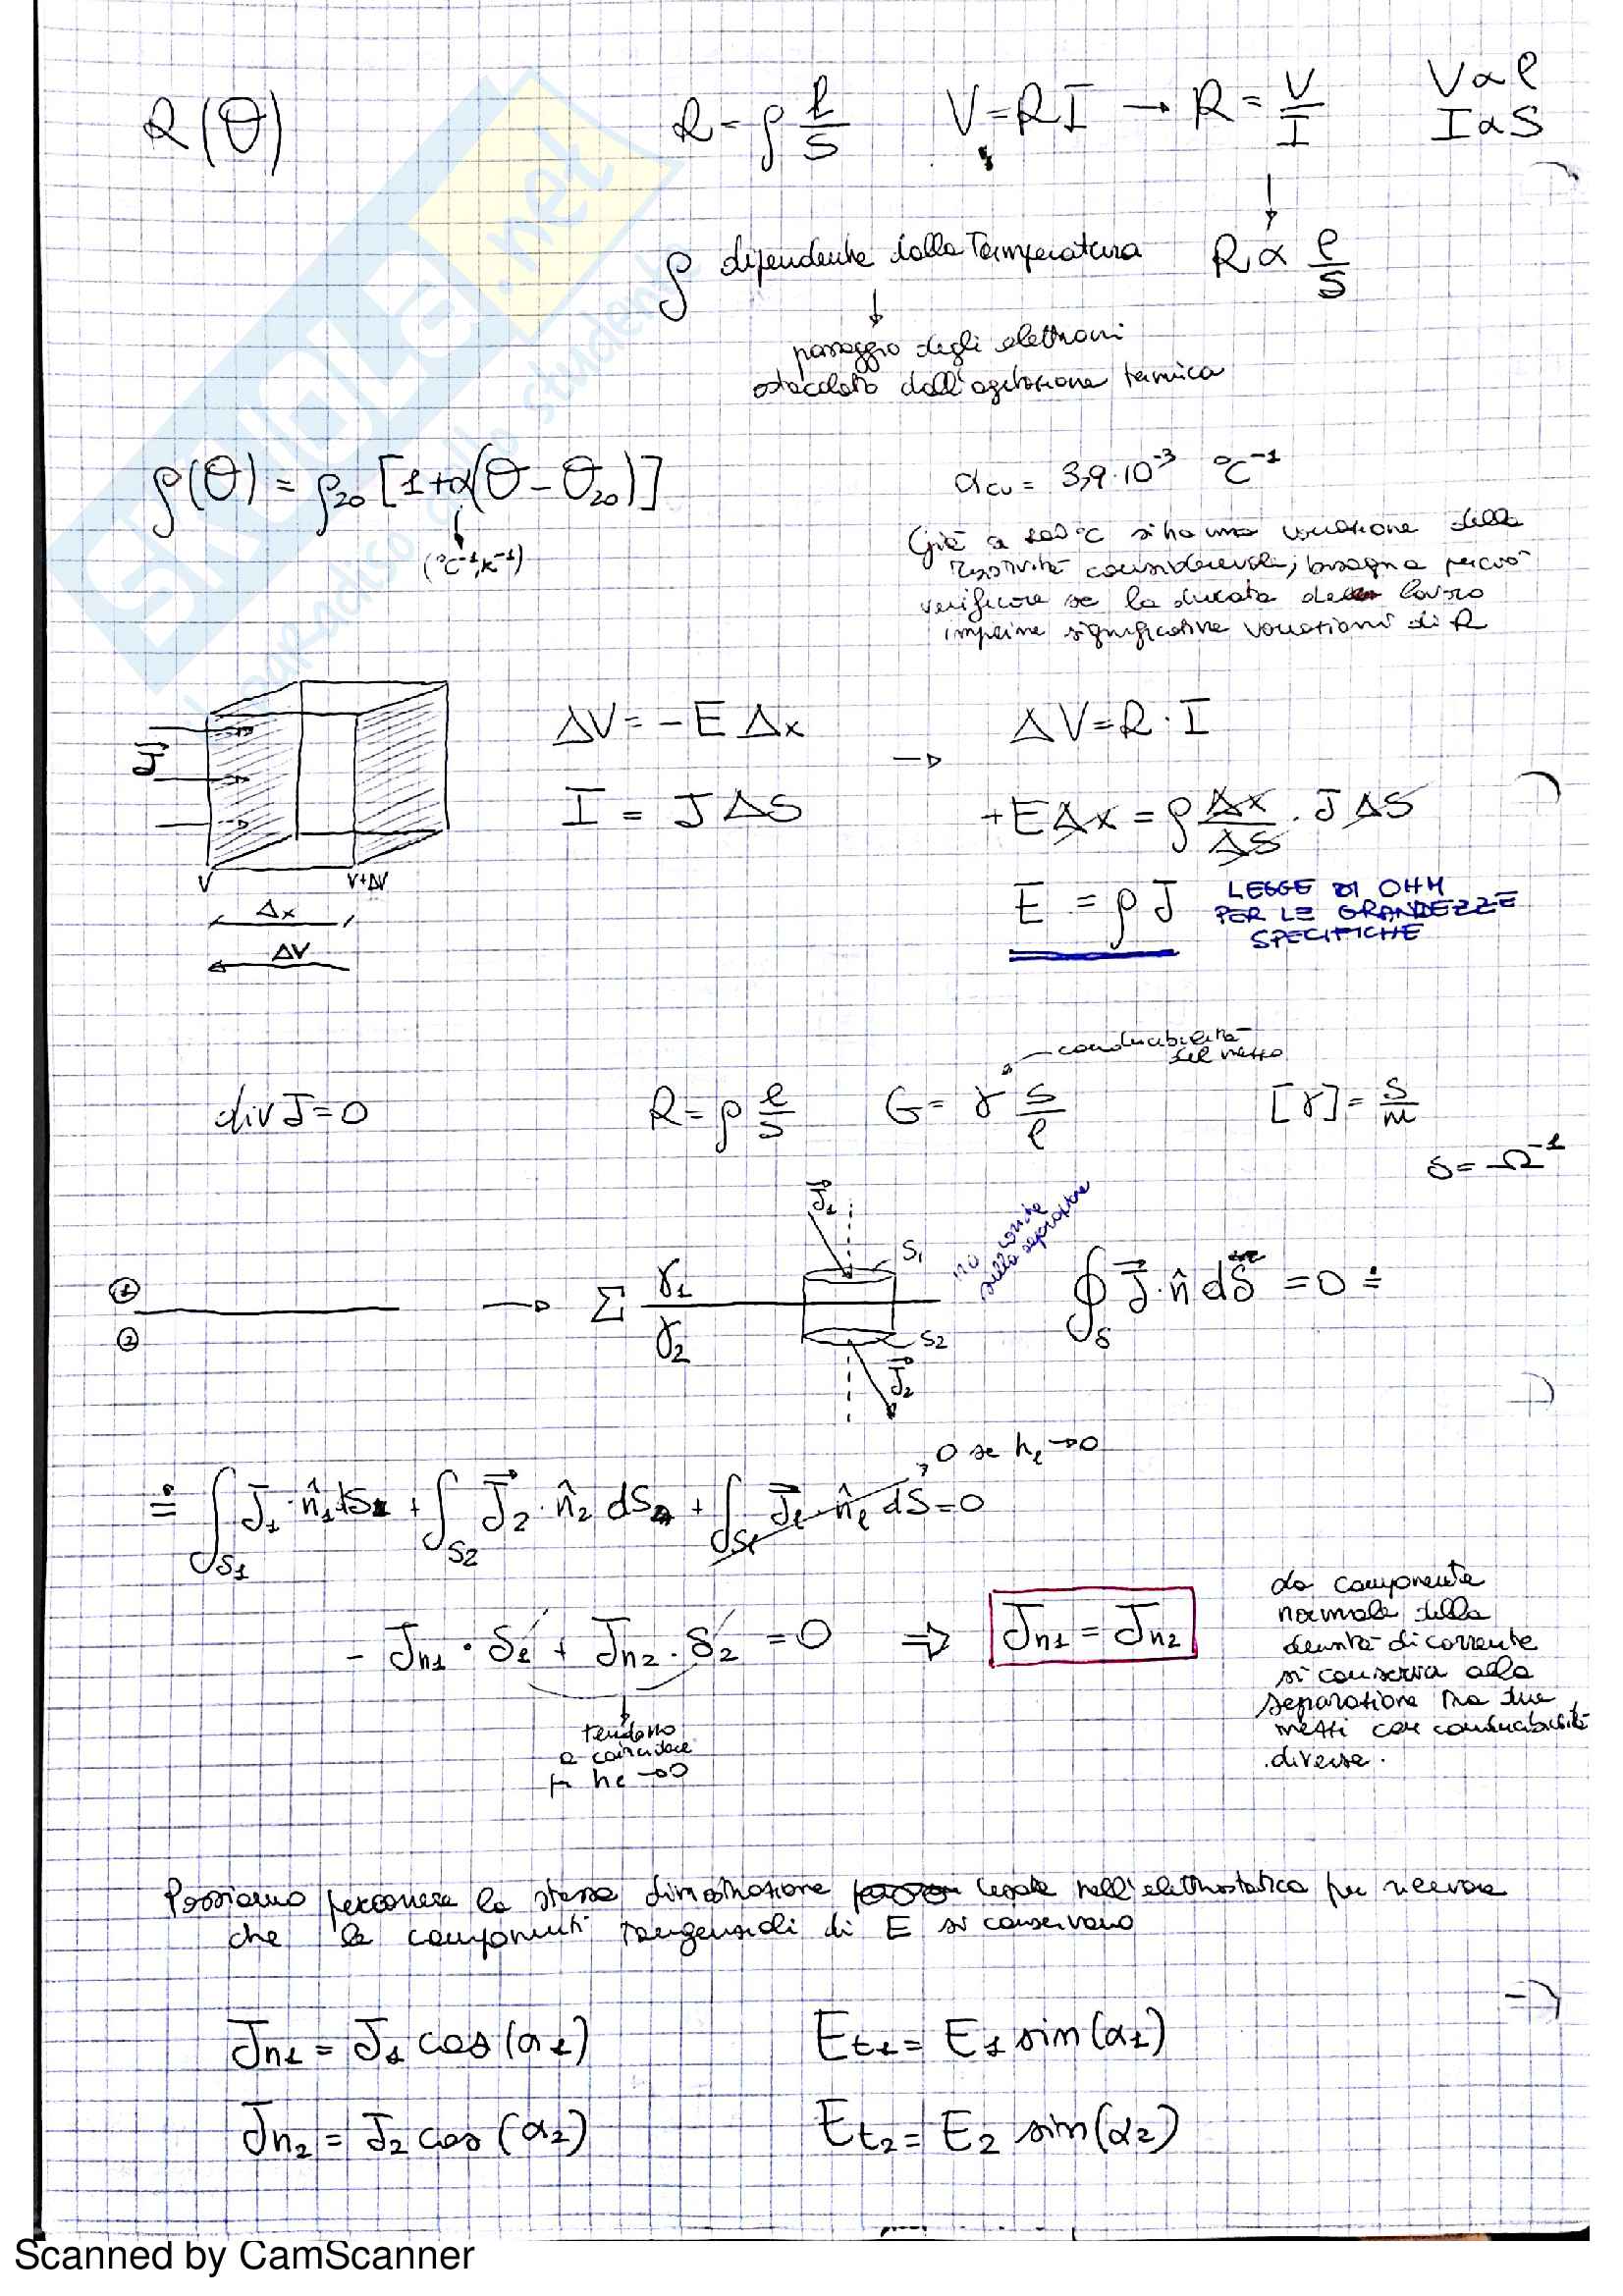 R(θ)
R = ρ ℓ/S
V = RI → R = V/I
V ∝ ℓ
I ∝ S
↓
ρ dipendente dalla Temperatura
R ∝ ℓ/S
↓
passaggio degli elettroni
ostacolato dall'agitazione termica
ρ(θ) = ρ20 [1+α(θ-θ20)]
(°C⁻¹, K⁻¹)
αcu = 3,9·10⁻³ °C⁻¹
Già a 100°C si ha una variazione della
resistività considerevole; bisogna perciò
verificare se la durata del lavoro
imprime significative variazioni di R
J
V
V+ΔV
Δx
ΔV
ΔV = - E Δx
I = J ΔS
→
ΔV = R · I
+ EΔx = ρ Δx/ΔS · J ΔS
E = ρJ
LEGGE DI OHM
PER LE GRANDEZZE
SPECIFICHE
conducibilità
del mezzo
div J = 0
R = ρ ℓ/S
G = γ S/ℓ
[γ] = S/m
S = Ω⁻¹
①
②
→ Σ
γ1
γ2
J1
S1
S2
J2
no cariche
sulla separazione
∮S J · n̂ dS = 0 ≐
≐ ∫S1 J1 · n̂1 dS + ∫S2 J2 · n̂2 dS + ∫Sℓ Jℓ · n̂ℓ dS = 0
0 se hℓ → 0
- Jn1 · S1 + Jn2 · S2 = 0 ⇒ Jn1 = Jn2
tendono
a coincidere
per hℓ → 0
La componente
normale della
densità di corrente
si conserva alla
separazione tra due
mezzi con conducibilità
diverse.
Possiamo percorrere la stessa dimostrazione usata nell'elettrostatica per ricavare
che le componenti tangenziali di E si conservano
Jn1 = J1 cos(α1)
Et1 = E1 sin(α1)
Jn2 = J2 cos(α2)
Et2 = E2 sin(α2)
Scanned by CamScanner